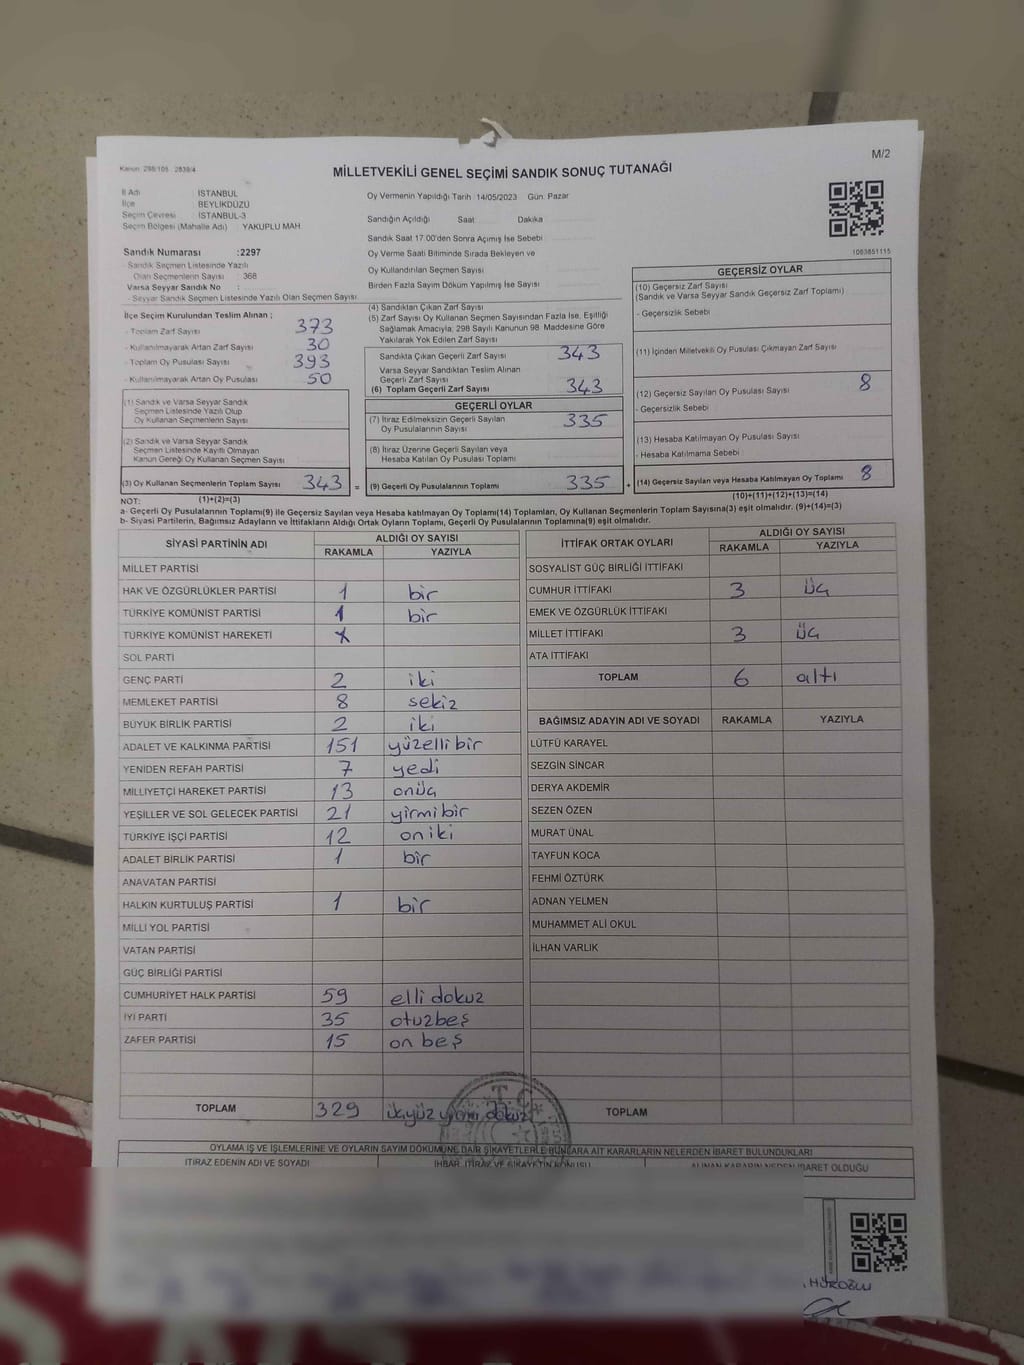 M/2
Kanun: 298/105 2839/4
MİLLETVEKİLİ GENEL SEÇİMİ SANDIK SONUÇ TUTANAĞI
İl Adı : İSTANBUL
İlçe : BEYLİKDÜZÜ
Seçim Çevresi : İSTANBUL-3
Seçim Bölgesi (Mahalle Adı) YAKUPLU MAH.
Oy Vermenin Yapıldığı Tarih 14/05/2023 Gün: Pazar
Sandığın Açıldığı Saat Dakika
Sandık Saat 17.00'den Sonra Açımış İse Sebebi
Oy Verme Saati Bitiminde Sırada Bekleyen ve
Oy Kullandırılan Seçmen Sayısı
Birden Fazla Sayım Döküm Yapılmış İse Sayısı
1093851115
Sandık Numarası :2297
- Sandık Seçmen Listesinde Yazılı
Olan Seçmenlerin Sayısı : 368
Varsa Seyyar Sandık No :
- Seyyar Sandık Seçmen Listesinde Yazılı Olan Seçmen Sayısı
İlçe Seçim Kurulundan Teslim Alınan ;
- Toplam Zarf Sayısı 373
- Kullanılmayarak Artan Zarf Sayısı 30
- Toplam Oy Pusulası Sayısı 393
- Kullanılmayarak Artan Oy Pusulası 50
(1) Sandık ve Varsa Seyyar Sandık
Seçmen Listesinde Yazılı Olup
Oy Kullanan Seçmenlerin Sayısı
(2) Sandık ve Varsa Seyyar Sandık
Seçmen Listesinde Kayıtlı Olmayan
Kanun Gereği Oy Kullanan Seçmen Sayısı
(3) Oy Kullanan Seçmenlerin Toplam Sayısı 343 =
(4) Sandıktan Çıkan Zarf Sayısı
(5) Zarf Sayısı Oy Kullanan Seçmen Sayısından Fazla İse, Eşitliği
Sağlamak Amacıyla, 298 Sayılı Kanunun 98. Maddesine Göre
Yakılarak Yok Edilen Zarf Sayısı
Sandıkta Çıkan Geçerli Zarf Sayısı 343
Varsa Seyyar Sandıktan Teslim Alınan
Geçerli Zarf Sayısı
(6) Toplam Geçerli Zarf Sayısı 343
GEÇERLİ OYLAR
(7) İtiraz Edilmeksizin Geçerli Sayılan
Oy Pusulalarının Sayısı 335
(8) İtiraz Üzerine Geçerli Sayılan veya
Hesaba Katılan Oy Pusulası Toplamı
(9) Geçerli Oy Pusulalarının Toplamı 335 +
GEÇERSİZ OYLAR
(10) Geçersiz Zarf Sayısı
(Sandık ve Varsa Seyyar Sandık Geçersiz Zarf Toplamı)
- Geçersizlik Sebebi
(11) İçinden Milletvekili Oy Pusulası Çıkmayan Zarf Sayısı
(12) Geçersiz Sayılan Oy Pusulası Sayısı 8
- Geçersizlik Sebebi
(13) Hesaba Katılmayan Oy Pusulası Sayısı
- Hesaba Katılmama Sebebi
(14) Geçersiz Sayılan veya Hesaba Katılmayan Oy Toplamı 8
NOT: (1)+(2)=(3) (10)+(11)+(12)+(13)=(14)
a- Geçerli Oy Pusulalarının Toplamı(9) ile Geçersiz Sayılan veya Hesaba katılmayan Oy Toplamı(14) Toplamları, Oy Kullanan Seçmenlerin Toplam Sayısına(3) eşit olmalıdır. (9)+(14)=(3)
b- Siyasi Partilerin, Bağımsız Adayların ve İttifakların Aldığı Ortak Oyların Toplamı, Geçerli Oy Pusulalarının Toplamına(9) eşit olmalıdır.
SİYASİ PARTİNİN ADI ALDIĞI OY SAYISI
RAKAMLA YAZIYLA
MİLLET PARTİSİ
HAK VE ÖZGÜRLÜKLER PARTİSİ 1 bir
TÜRKİYE KOMÜNİST PARTİSİ 1 bir
TÜRKİYE KOMÜNİST HAREKETİ
SOL PARTİ
GENÇ PARTİ 2 iki
MEMLEKET PARTİSİ 8 sekiz
BÜYÜK BİRLİK PARTİSİ 2 iki
ADALET VE KALKINMA PARTİSİ 151 yüzellibir
YENİDEN REFAH PARTİSİ 7 yedi
MİLLİYETÇİ HAREKET PARTİSİ 13 onüç
YEŞİLLER VE SOL GELECEK PARTİSİ 21 yirmibir
TÜRKİYE İŞÇİ PARTİSİ 12 oniki
ADALET BİRLİK PARTİSİ 1 bir
ANAVATAN PARTİSİ
HALKIN KURTULUŞ PARTİSİ 1 bir
MİLLİ YOL PARTİSİ
VATAN PARTİSİ
GÜÇ BİRLİĞİ PARTİSİ
CUMHURİYET HALK PARTİSİ 59 elli dokuz
İYİ PARTİ 35 otuzbeş
ZAFER PARTİSİ 15 on beş
TOPLAM 329 üçyüz yirmi dokuz
İTTİFAK ORTAK OYLARI ALDIĞI OY SAYISI
RAKAMLA YAZIYLA
SOSYALİST GÜÇ BİRLİĞİ İTTİFAKI
CUMHUR İTTİFAKI 3 üç
EMEK VE ÖZGÜRLÜK İTTİFAKI
MİLLET İTTİFAKI 3 üç
ATA İTTİFAKI
TOPLAM 6 altı
BAĞIMSIZ ADAYIN ADI VE SOYADI RAKAMLA YAZIYLA
LÜTFÜ KARAYEL
SEZGİN SİNCAR
DERYA AKDEMİR
SEZEN ÖZEN
MURAT ÜNAL
TAYFUN KOCA
FEHMİ ÖZTÜRK
ADNAN YELMEN
MUHAMMET ALİ OKUL
İLHAN VARLIK
TOPLAM
T.C.
OYLAMA İŞ VE İŞLEMLERİNE VE OYLARIN SAYIM DÖKÜMÜNE DAİR ŞİKAYETLERLE BUNLARA AİT KARARLARIN NELERDEN İBARET BULUNDUKLARI
İTİRAZ EDENİN ADI VE SOYADI İHBAR, İTİRAZ VE ŞİKAYETİN KONUSU ALINAN KARARIN NEDEN İBARET OLDUĞU